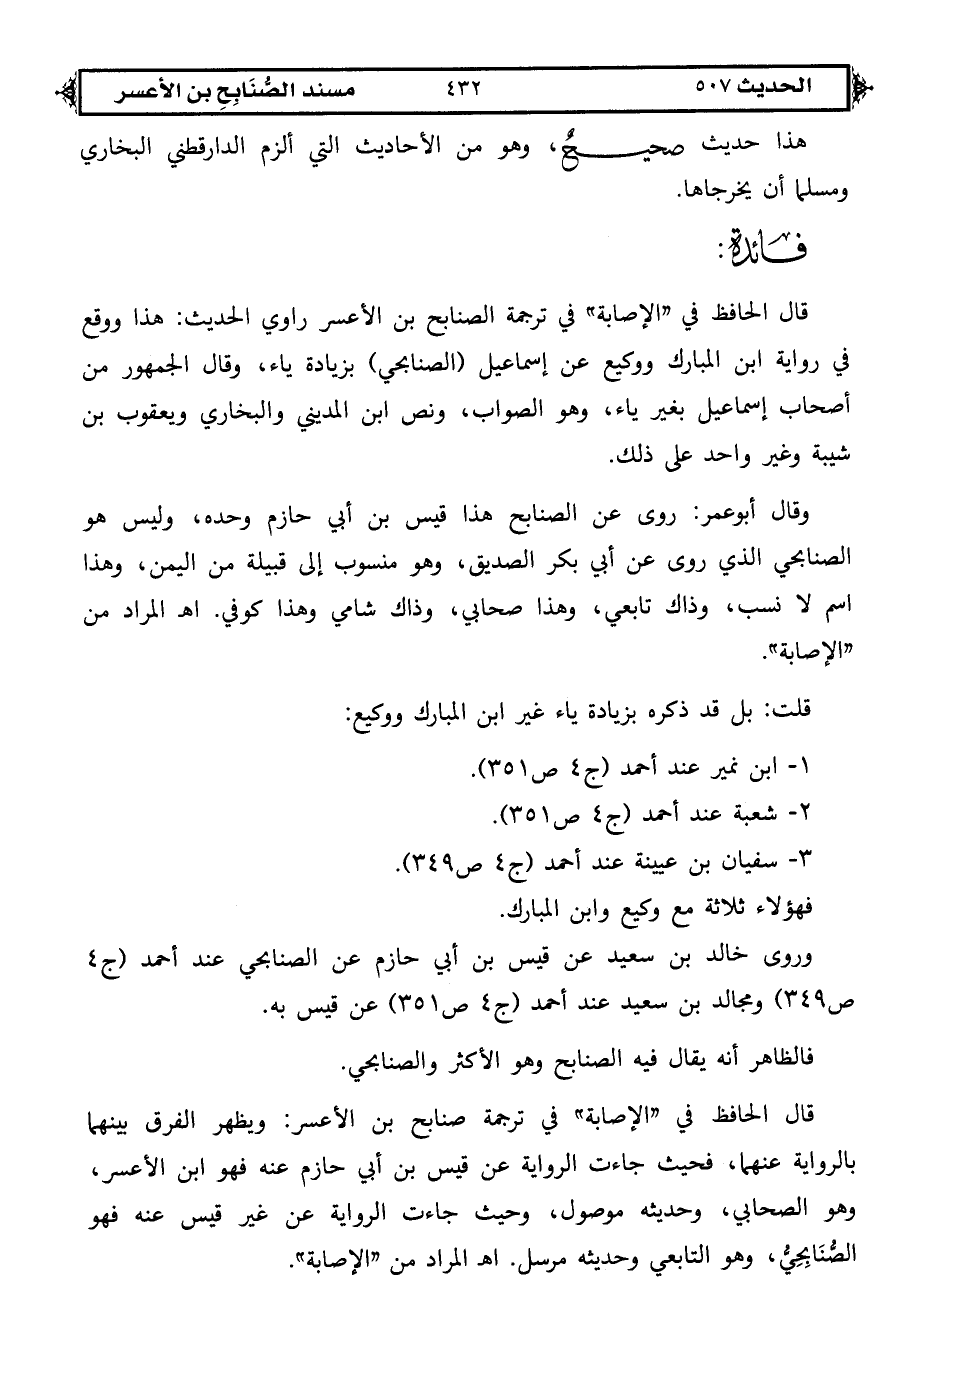 الحديث ٥٠٧ ٤٣٢ مسند الصُّنَابِحِ بن الأعسر
هذا حديث صحيحٌ، وهو من الأحاديث التي ألزم الدارقطني البخاري
ومسلما أن يخرجاها.
فائدة:
قال الحافظ في "الإصابة" في ترجمة الصنابح بن الأعسر راوي الحديث: هذا ووقع
في رواية ابن المبارك ووكيع عن إسماعيل (الصنابحي) بزيادة ياء، وقال الجمهور من
أصحاب إسماعيل بغير ياء، وهو الصواب، ونص ابن المديني والبخاري ويعقوب بن
شيبة وغير واحد على ذلك.
وقال أبوعمر: روى عن الصنابح هذا قيس بن أبي حازم وحده، وليس هو
الصنابحي الذي روى عن أبي بكر الصديق، وهو منسوب إلى قبيلة من اليمن، وهذا
اسم لا نسب، وذاك تابعي، وهذا صحابي، وذاك شامي وهذا كوفي. اهـ المراد من
"الإصابة".
قلت: بل قد ذكره بزيادة ياء غير ابن المبارك ووكيع:
١- ابن نمير عند أحمد (ج٤ ص٣٥١).
٢- شعبة عند أحمد (ج٤ ص٣٥١).
٣- سفيان بن عيينة عند أحمد (ج٤ ص٣٤٩).
فهؤلاء ثلاثة مع وكيع وابن المبارك.
وروى خالد بن سعيد عن قيس بن أبي حازم عن الصنابحي عند أحمد (ج٤
ص٣٤٩) ومجالد بن سعيد عند أحمد (ج٤ ص٣٥١) عن قيس به.
فالظاهر أنه يقال فيه الصنابح وهو الأكثر والصنابحي.
قال الحافظ في "الإصابة" في ترجمة صنابح بن الأعسر: ويظهر الفرق بينهما
بالرواية عنهما، فحيث جاءت الرواية عن قيس بن أبي حازم عنه فهو ابن الأعسر،
وهو الصحابي، وحديثه موصول، وحيث جاءت الرواية عن غير قيس عنه فهو
الصُّنَابِحِيُّ، وهو التابعي وحديثه مرسل. اهـ المراد من "الإصابة".